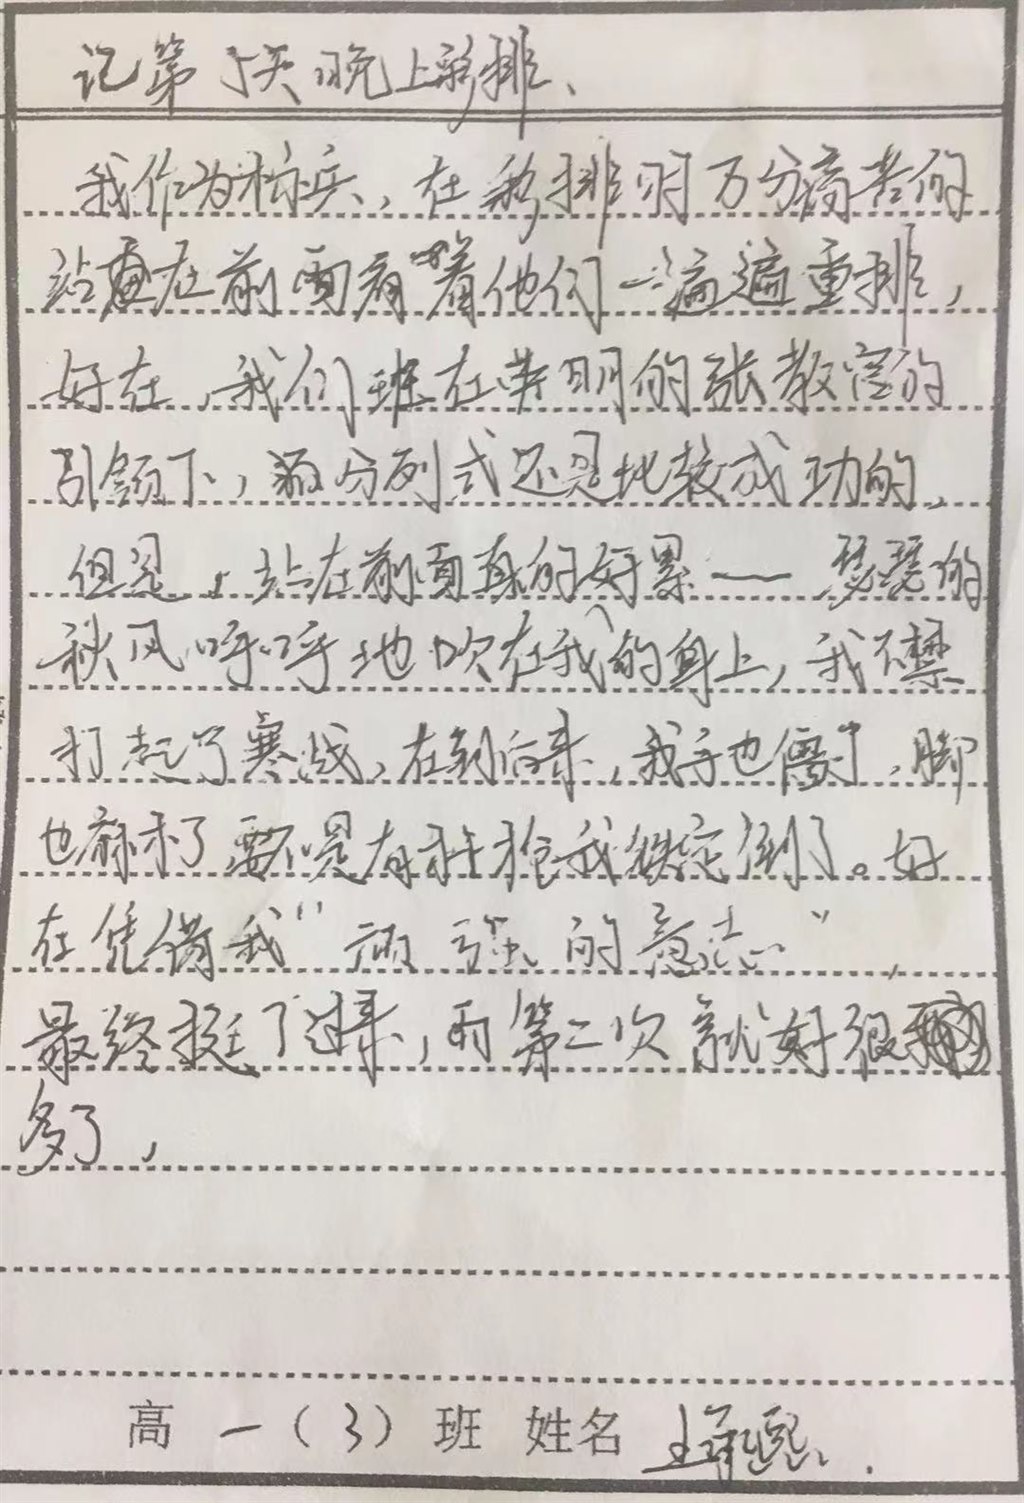 记第5天晚上彩排、
我作为标兵,在彩排时万分痛苦的
站在前面看着他们一遍遍重排,
好在,我们班在英明的张教官的
引领下,分列式还是比较成功的,
但是,站在前面真的好累——瑟瑟的
秋风呼呼地吹在我的身上,我不禁
打起了寒战,在到后来,我手也僵了,脚
也麻木了要不是有把枪我铁定倒了。好
在凭借我"顽强的意志",
最终挺了过来,而第二次就好很
多了,
高一(3)班 姓名